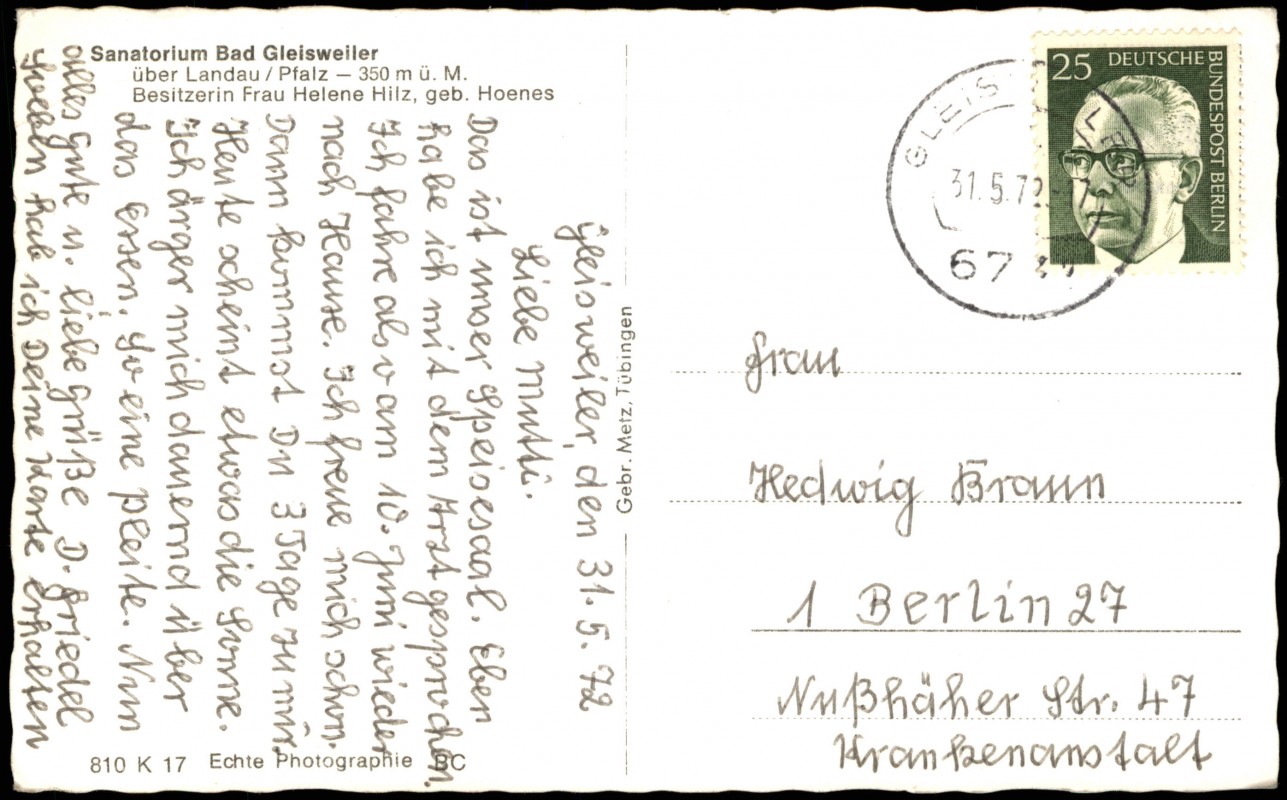 Sanatorium Bad Gleisweiler
über Landau / Pfalz — 350 m ü. M.
Besitzerin Frau Helene Hilz, geb. Hoenes
Gleisweiler, den 31. 5. 72
Liebe Mutti.
Das ist unser Speisesaal. Eben
habe ich mit dem Arzt gesprochen.
Ich fahre also am 10. Juni wieder
nach Hause. Ich freue mich schon.
Dann kommst Du 3 Tage zu mir.
Heute scheint etwas die Sonne.
Ich ärger mich dauernd über
das Essen. So eine pleite. Nun
alles Gute u. liebe Grüße D. Friedel
soeben hab ich Deine Karte erhalten
810 K 17 Echte Photographie BC
Gebr. Metz, Tübingen
25 DEUTSCHE BUNDESPOST BERLIN
GLEISWEILER
31.5.72
67
Frau
Hedwig Braun
1 Berlin 27
Nußhäher Str. 47
Krankenanstalt